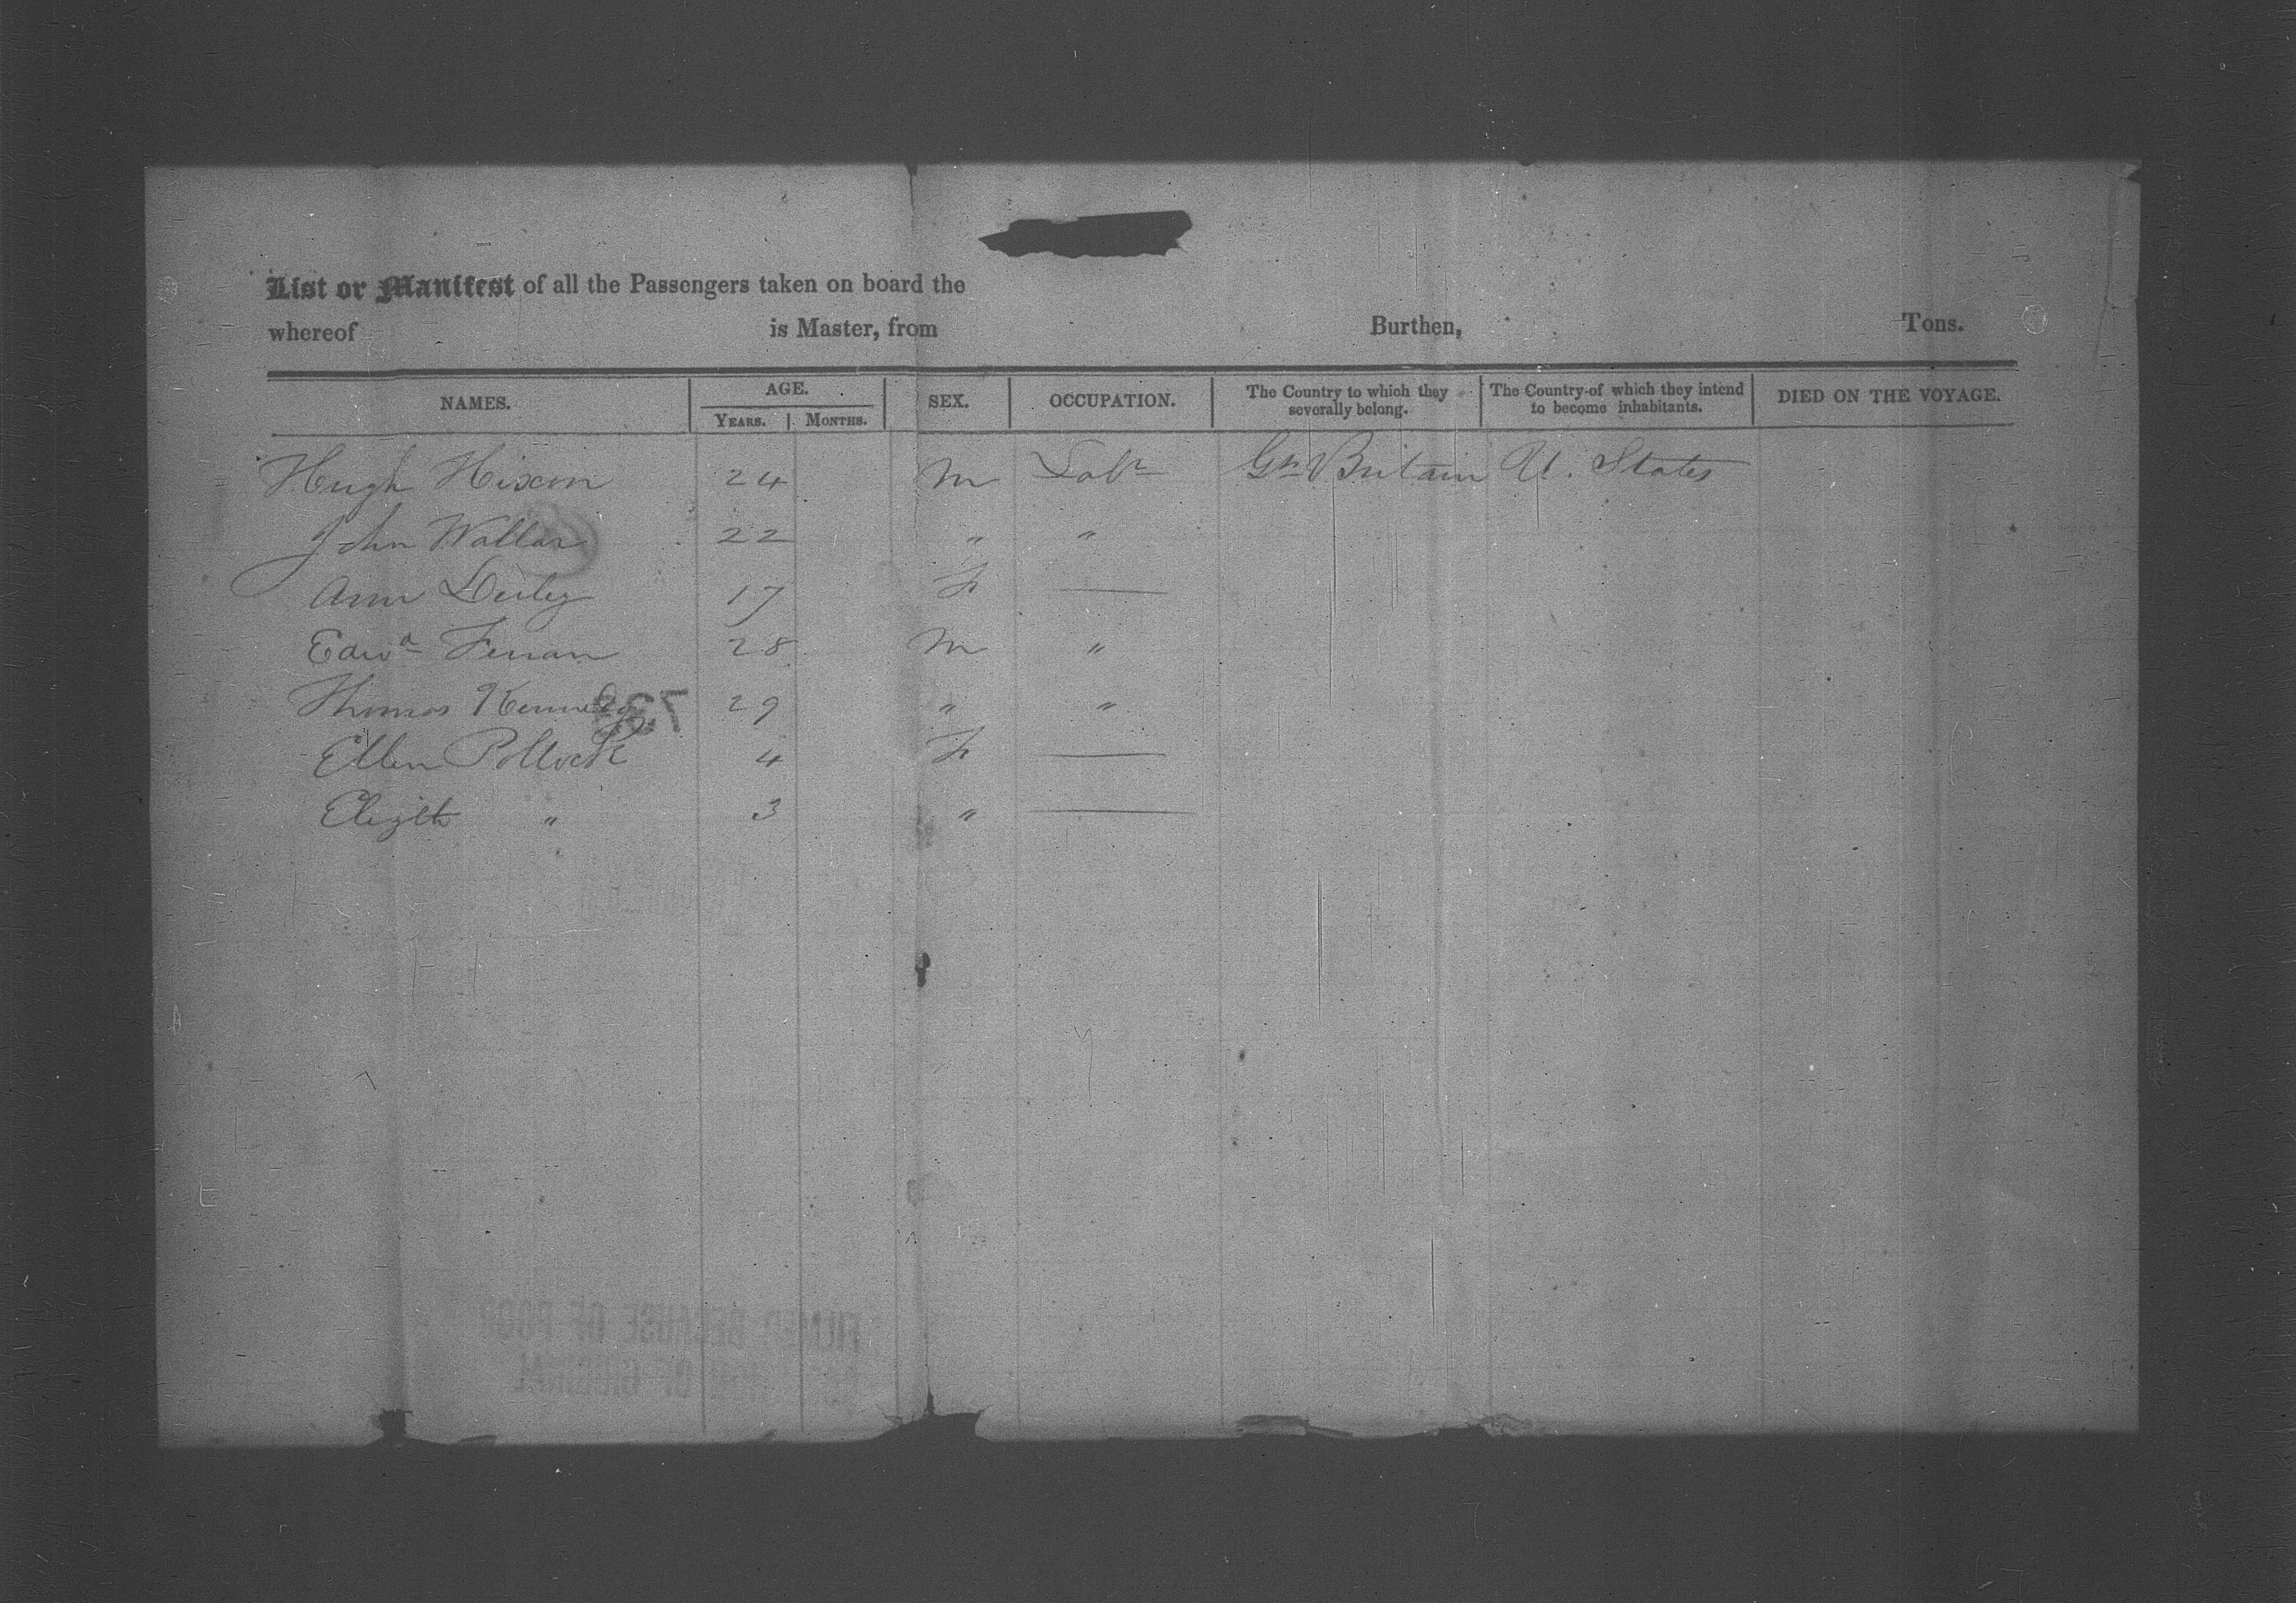 List or Manifest of all the Passengers taken on board the
whereof is Master, from Burthen, Tons.
NAMES. AGE. SEX. OCCUPATION. The Country to which they severally belong. The Country of which they intend to become inhabitants. DIED ON THE VOYAGE.
YEARS. MONTHS.
Hugh Hixon 24 M Labr Gt Britain U. States
John Wallas 22 " "
Ann 17 F —
Edwd 28 M "
Thomas Kennedy 29 " "
Ellen Pollock 4 F —
Elizth " 3 " —
FILMED BECAUSE OF POOR
OF ORIGINAL